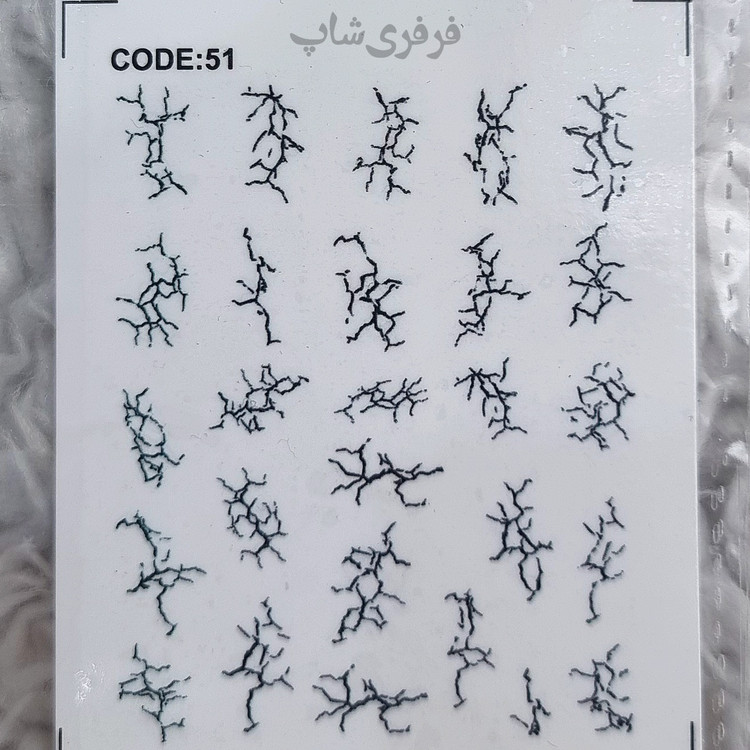 فرفری شاپ
CODE:51